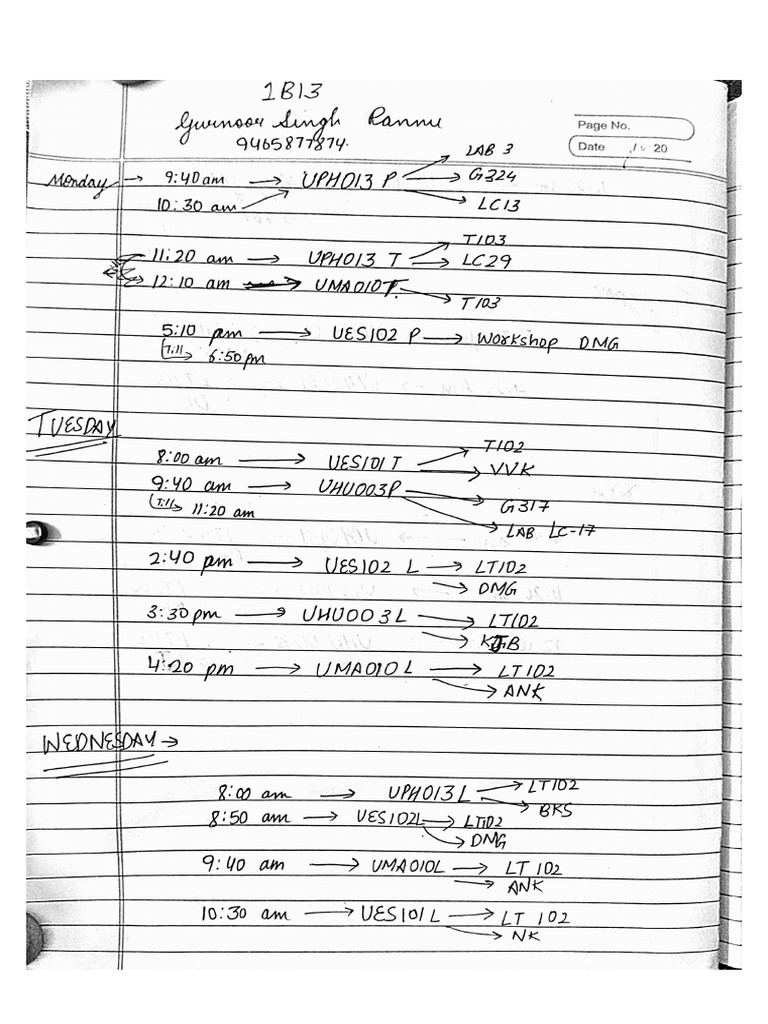 1B13
Gurnoor Singh Pannu
9465877874.
Page No.
Date / 20
Monday → 9:40 am → UPH013 P → LAB 3
→ G324
10:30 am → LC13
11:20 am → UPH013 T → T103
→ LC29
12:10 am → UMA010T. → T103
5:10 pm → UES102 P → Workshop DMG
(Till → 6:50 pm
TUESDAY
8:00 am → UES101 T → T102
→ VVK
9:40 am → UHU003P → G317
(Till → 11:20 am → LAB LC-17
2:40 pm → UES102 L → LT102
→ DMG
3:30 pm → UHU003L → LT102
→ KJB
4:20 pm → UMA010L → LT102
→ ANK
WEDNESDAY →
8:00 am → UPH013L → LT102
→ BKS
8:50 am → UES102L → LT102
→ DMG
9:40 am → UMA010L → LT 102
→ ANK
10:30 am → UES101 L → LT 102
→ NK